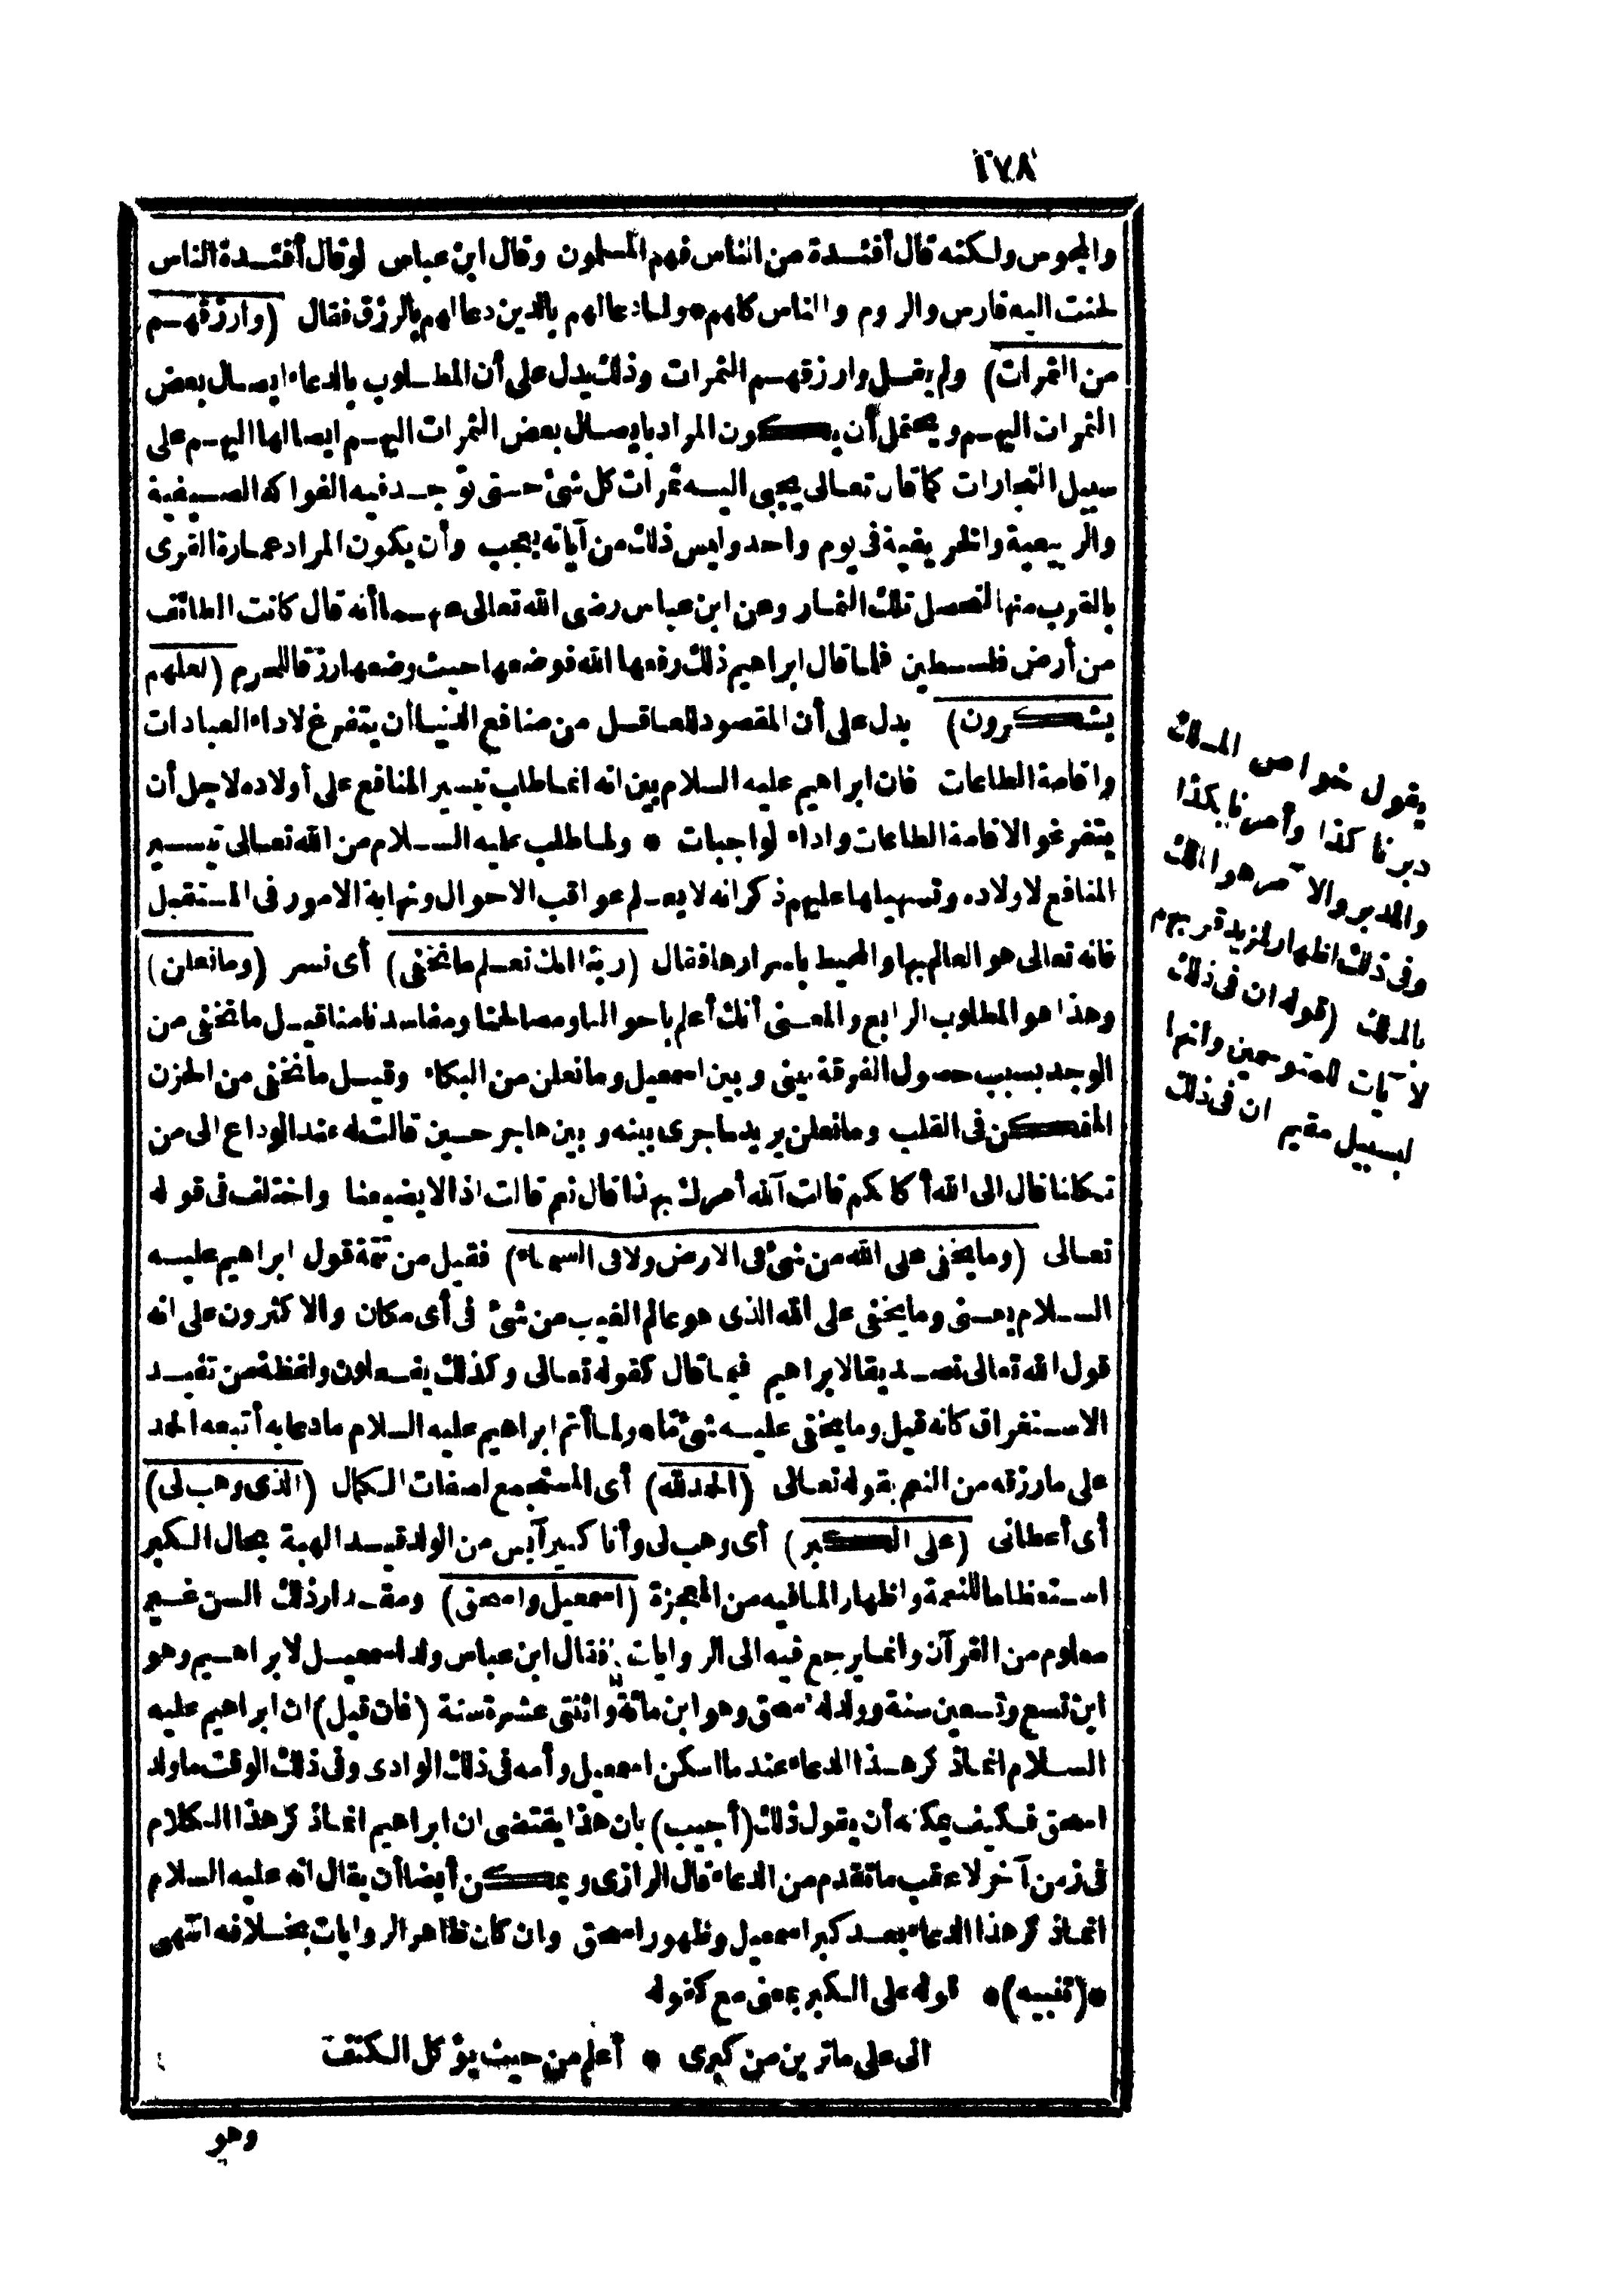 ١٧٨
والمجوس ولكنه قال أفئدة من الناس فهم المسلمون وقال ابن عباس لو قال أفئدة الناس
لحنت اليه فارس والروم والناس كلهم * ولما دعا لهم بالدين دعا لهم بالرزق فقال (وارزقهم
من الثمرات) ولم يقل وارزقهم الثمرات وذلك يدل على أن المطلوب بالدعاء ايصال بعض
الثمرات اليهم ويحتمل أن يكون المراد بايصال بعض الثمرات اليهم ايصالها اليهم على
سبيل التجارات كما قال تعالى يجبى اليه ثمرات كل شئ حتى توجد فيه الفواكه الصيفية
والربيعية والخريفية في يوم واحد وليس ذلك من آياته بعجب وأن يكون المراد عمارة القرى
بالقرب منها لتحصل تلك الثمار وعن ابن عباس رضى الله تعالى عنهما أنه قال كانت الطائف
من أرض فلسطين فلما قال ابراهيم ذلك رفعها الله فوضعها حيث وضعها رزقا للحرم (لعلهم
يشكرون) يدل على أن المقصود للعاقل من منافع الدنيا أن يتفرغ لاداء العبادات
واقامة الطاعات فان ابراهيم عليه السلام بين انه انما طلب تيسير المنافع على أولاده لاجل أن
يتفرغوا لاقامة الطاعات واداء لواجبات * ولما طلب عليه السلام من الله تعالى تيسير
المنافع لاولاده وتسهيلها عليهم ذكر انه لا يعلم عواقب الاحوال ونهاية الامور في المستقبل
فانه تعالى هو العالم بها والمحيط باسرارها فقال (ربنا انك تعلم ما نخفى) أى نسر (وما نعلن)
وهذا هو المطلوب الرابع والمعنى أنك أعلم باحوالنا ومصالحنا ومفاسدنا منا قيل ما نخفى من
الوجد بسبب حصول الفرقة بينى وبين اسمعيل وما نعلن من البكاء وقيل ما نخفى من الحزن
المتمكن في القلب وما نعلن يريد ما جرى بينه وبين هاجر حسين قالت له عند الوداع الى من
تكلنا قال الى الله أكلكم قالت آلله أمرك بهذا قال نعم قالت اذا لا يضيعنا واختلف في قوله
تعالى (وما يخفى على الله من شئ في الارض ولا في السماء) فقيل من تتمة قول ابراهيم عليه
السلام يعنى وما يخفى على الله الذى هو عالم الغيب من شئ في أى مكان والاكثرون على انه
قول الله تعالى تصديقا لابراهيم فيما قال كقوله تعالى وكذلك يفعلون ولفظة من تفيد
الاستغراق كانه قيل وما يخفى عليه شئ ما * ولما أتم ابراهيم عليه السلام ما دعا به أتبعه الحمد
على ما رزقه من النعم بقوله تعالى (الحمد لله) أى المستجمع لصفات الكمال (الذى وهب لى)
أى أعطانى (على الكبر) أى وهب لى وأنا كبير آيس من الولد قيد الهبة بحال الكبر
استعظاما للنعمة واظهارا لما فيه من المعجزة (اسمعيل واسحق) ومقدار ذلك السن غير
معلوم من القرآن وانما يرجع فيه الى الروايات فقال ابن عباس ولد اسمعيل لابراهيم وهو
ابن تسع وتسعين سنة وولد له اسحق وهو ابن مائة واثنتى عشرة سنة (فان قيل) ان ابراهيم عليه
السلام انما ذكر هذا الدعاء عند ما اسكن اسمعيل وأمه في ذلك الوادى وفي ذلك الوقت ما ولد
اسحق فكيف يمكنه أن يقول ذلك (أجيب) بان هذا يقتضى ان ابراهيم انما ذكر هذا الكلام
في زمن آخر لا عقب ما تقدم من الدعاء قال الرازى ويمكن أيضا أن يقال انه عليه السلام
انما ذكر هذا الدعاء بعد كبر اسمعيل وظهور اسحق وان كان ظاهر الروايات بخلافه انتهى
*(تنبيه)* قوله على الكبر بمعنى مع كقوله
انى على ما ترين من كبرى * أعلم من حيث يؤكل الكتف
وهو
يقول خواص الملك
دبرنا كذا وأمرنا بكذا
والمدبر والآمر هو الملك
وفي ذلك اظهار لمزيد قربهم
بالملك (قوله ان في ذلك
لآيات للمتوسمين وانها
لبسبيل مقيم ان في ذلك